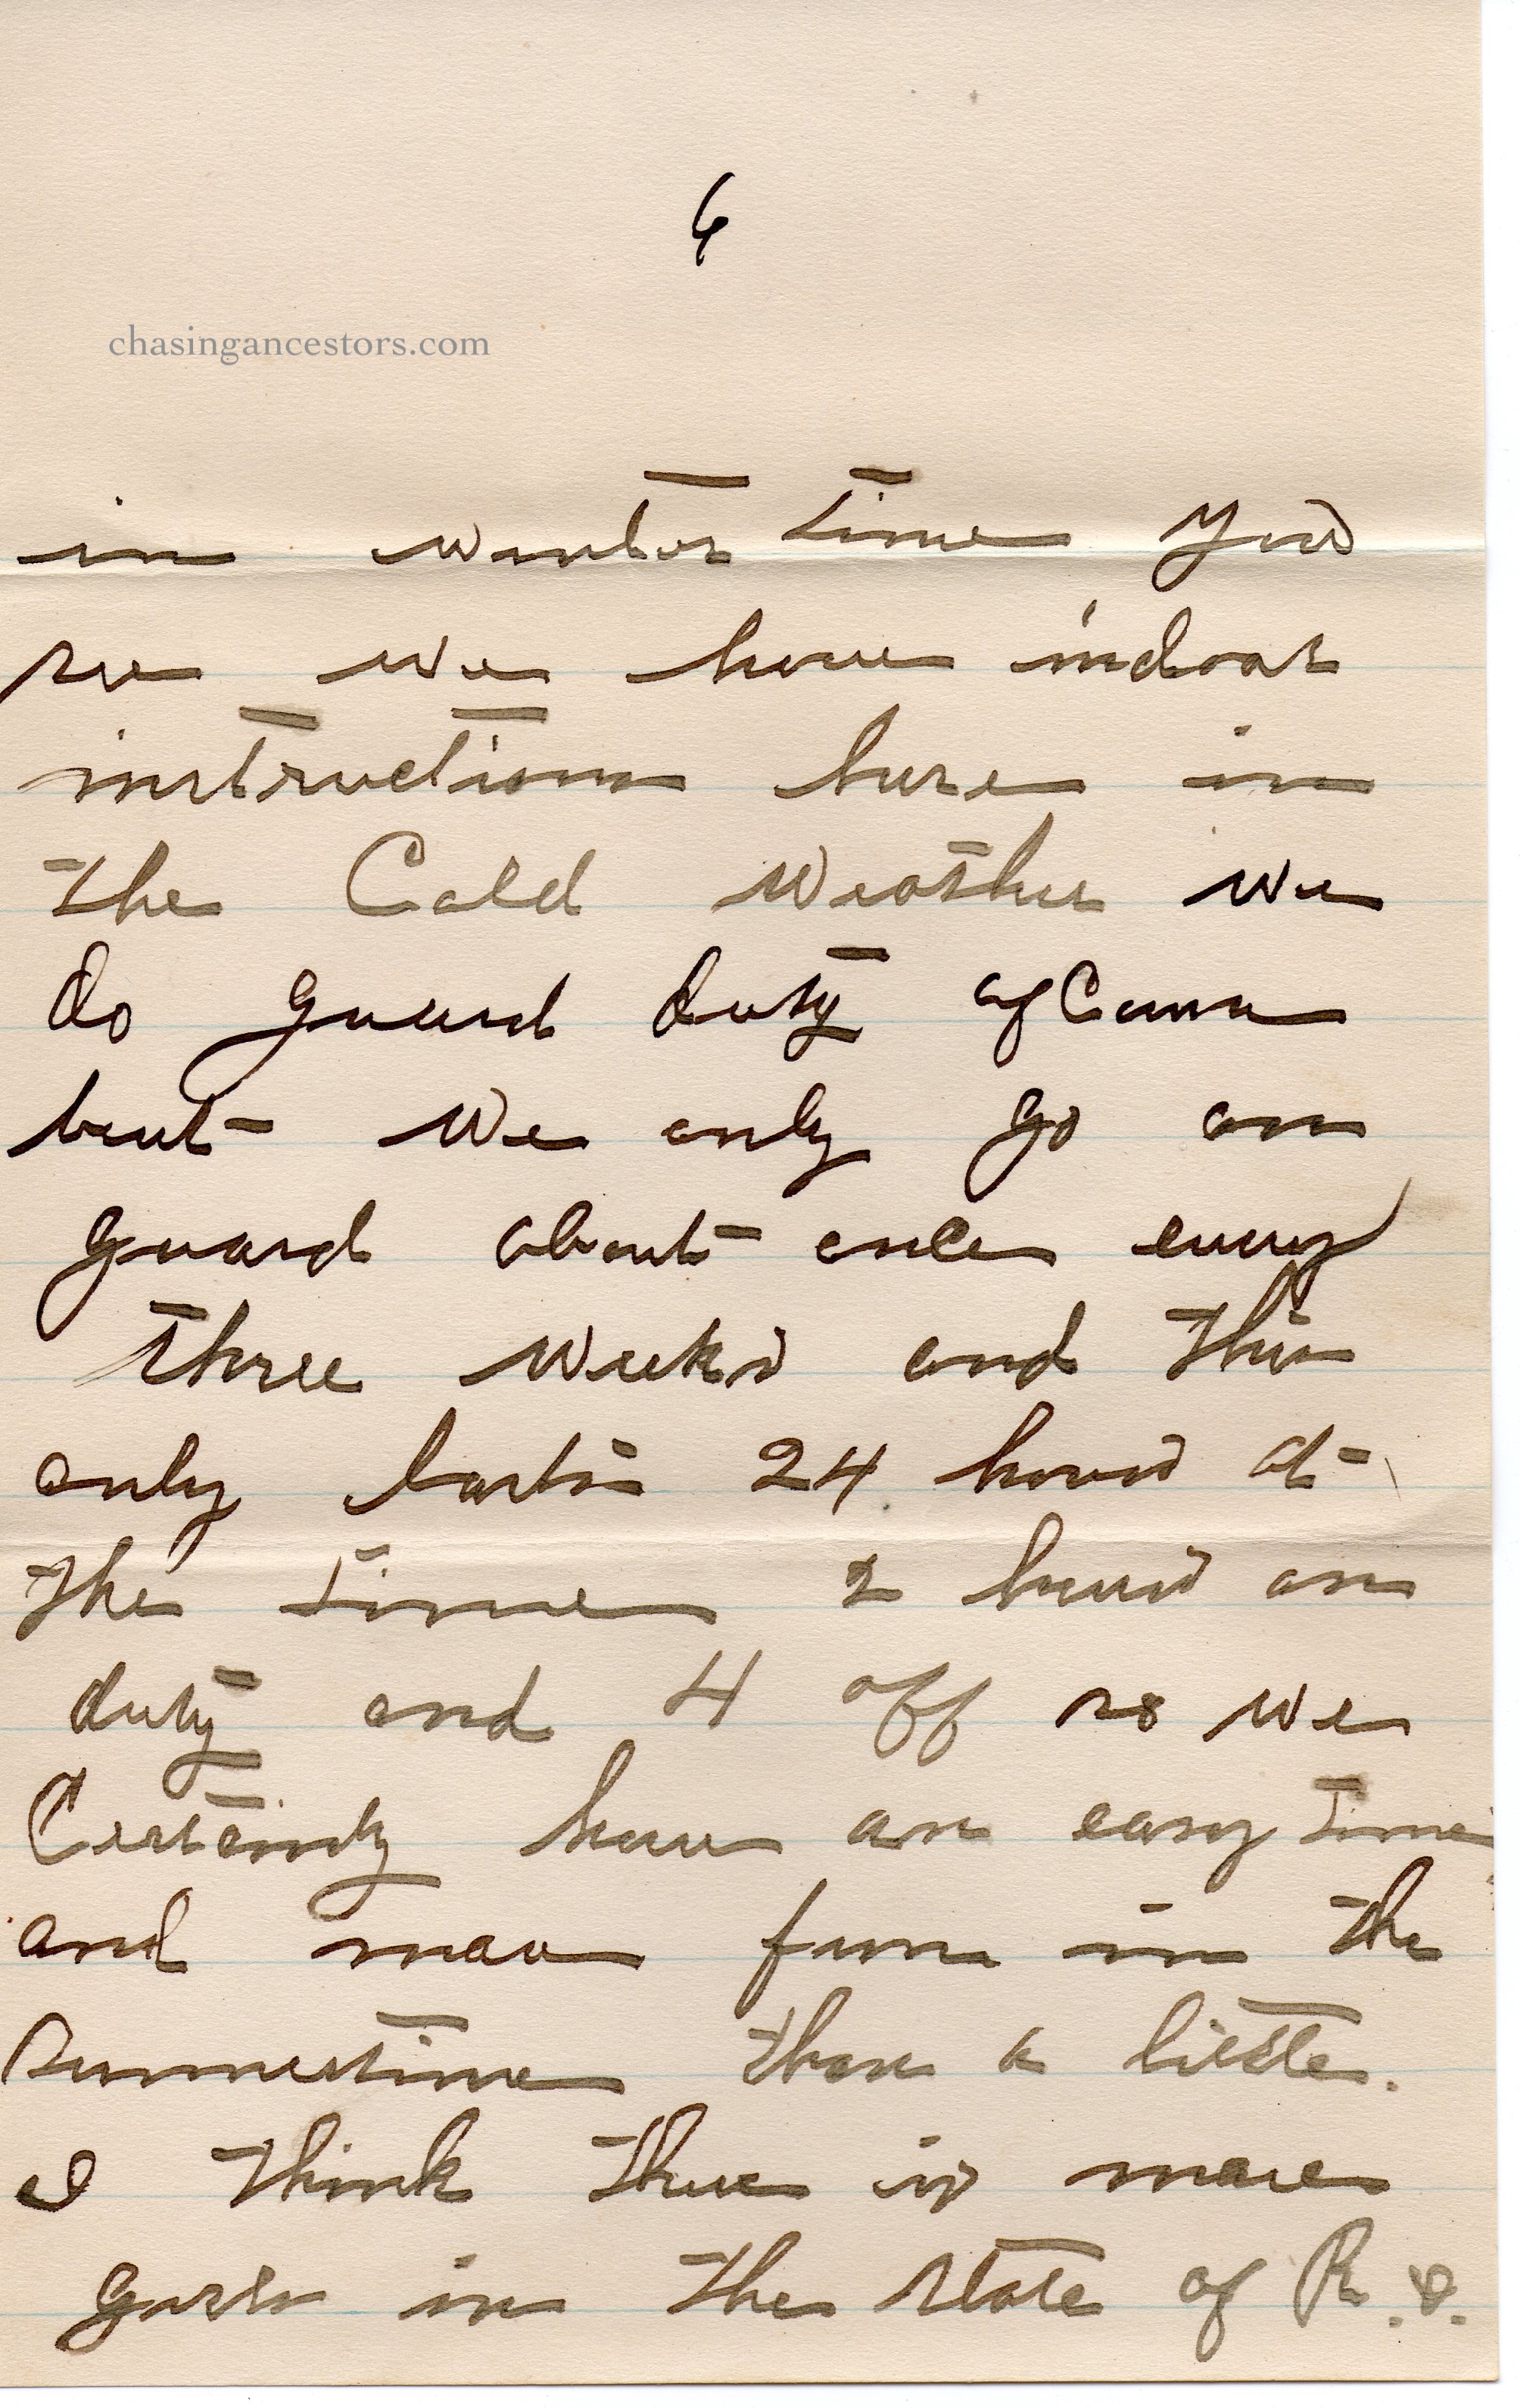 6
chasingancestors.com
in winter time You
see we have indoor
instructions here in
the Cold Weather we
do guard duty of Course
but we only go on
guard about once every
three weeks and this
only lasts 24 hours at
the time 2 hours on
duty and 4 off so we
Certainly have an easy time
and more fun in the
Summertime than a little.
I think there is more
girls in the state of R.I.